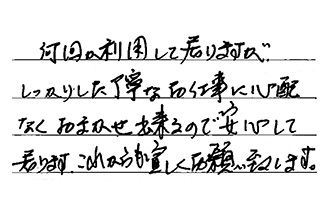 何回か利用して居りますが
しっかりした丁寧なお仕事に心配
なくおまかせ出来るので安心して
居ります。これからも宜しくお願い致します。